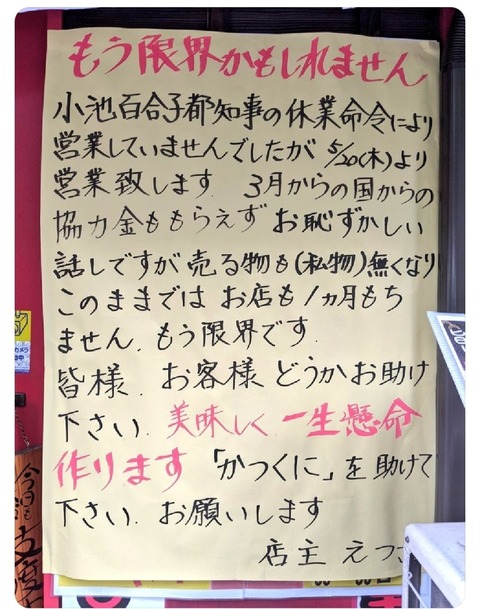 もう限界かもしれません
小池百合子都知事の休業命令により
営業していませんでしたが 5/20(木)より
営業致します. 3月からの国からの
協力金ももらえず お恥ずかしい
話しですが 売る物も(私物)無くなり
このままでは お店も1ヵ月もち
ません. もう限界です.
皆様. お客様 どうかお助け
下さい. 美味しく 一生懸命
作ります 「かつくに」を助けて
下さい. お願いします
店主 えつ
今日も